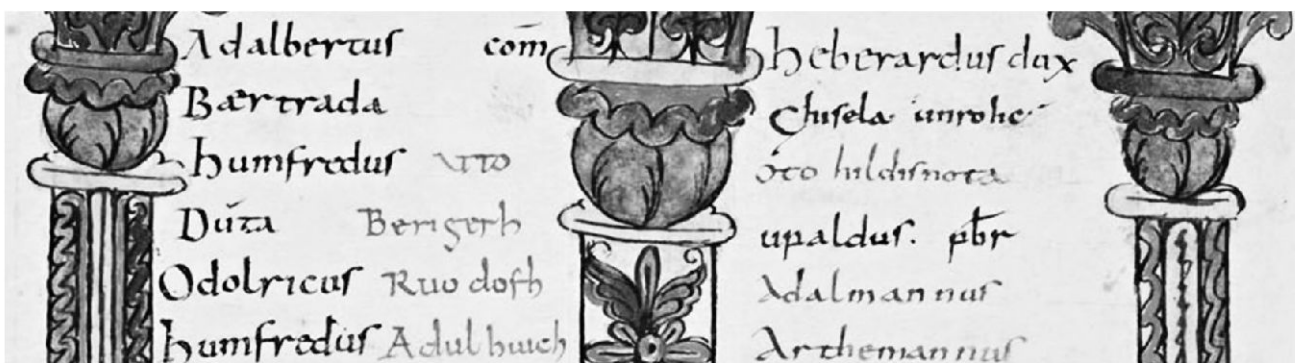 Adalbertus com̄
Bærtrada
humfredus Atto
Duta Berigerh
Odolricus Ruodolh
humfredus Adulhuich
heberardus dux
Ghisela unrohc
Oto hildisnota
upaldus. pbr
Adalmannus
Arthemannus